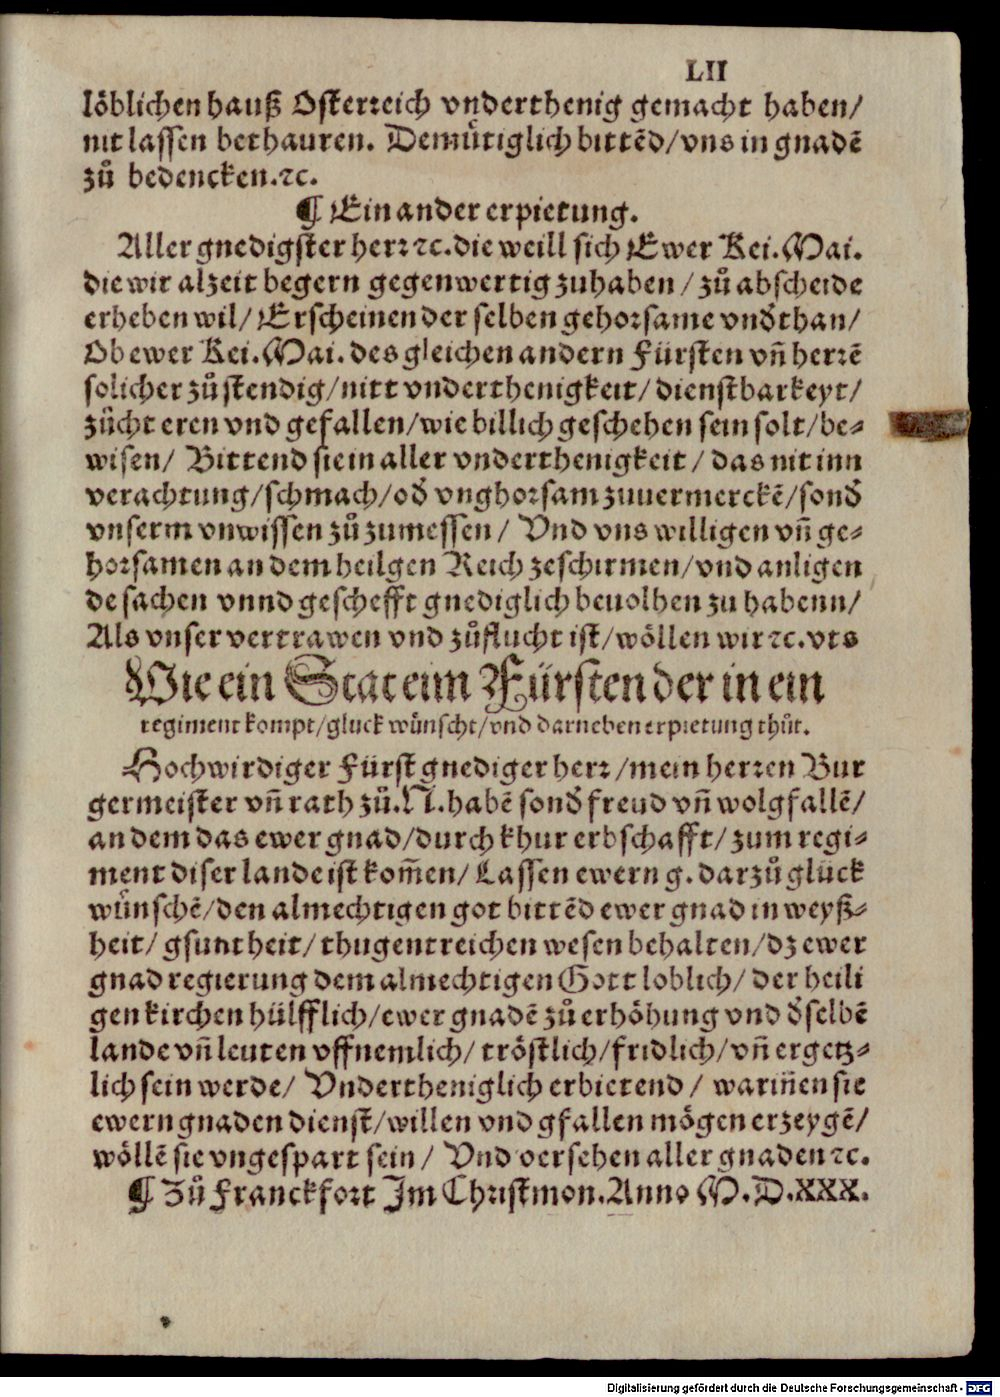 LII
löblichen hauß Osterreich vnderthenig gemacht haben/
nit lassen bethauren. Demütiglich bittēd/vns in gnadē
zů bedencken.ꝛc.
¶ Ein ander erpietung.
Aller gnedigster herꝛ ꝛc. die weill sich Ewer Kei. Mai.
die wir alzeit begern gegenwertig zuhaben / zů abscheide
erheben wil/ Erscheinen der selben gehoꝛsame vnd̕ than/
Ob ewer Kei. Mai. des gleichen andern Fürsten vn̄ herꝛē
solicher zůstendig/nitt vnderthenigkeit/ dienstbarkeyt/
zücht eren vnd gefallen/wie billich geschehen sein solt/be⸗
wisen/ Bittend sie in aller vnderthenigkeit / das nit inn
verachtung/schmach/od̕ vnghoꝛsam zuuermerckē/sond̕
vnserm vnwissen zůzumessen / Vnd vns willigen vn̄ ge⸗
hoꝛsamen an dem heilgen Reich zeschirmen/vnd anligen
de sachen vnnd geschefft gnediglich beuolhen zu habenn/
Als vnser vertrawen vnd zůflucht ist/wöllen wir ꝛc. vts
Wie ein Stat eim Fürsten der in ein
regiment kompt/gluck wünscht/vnd darneben erpietung thůt.
Hochwirdiger Fürst gnediger herꝛ /mein herꝛen Bur
germeister vn̄ rath zů. N. habē sond̕ freud vn̄ wolgfallē/
an dem das ewer gnad/durch khur erbschafft/ zum regi⸗
ment diser lande ist kom̄en/ Lassen ewern g. darzů glück
wünschē/den almechtigen got bittēd ewer gnad in weyß⸗
heit/ gsuntheit/ thugentreichen wesen behalten/dz ewer
gnad regierung dem almechtigen Gott loblich/ der heili
gen kirchen hülfflich/ewer gnadē zů erhöhung vnd d̕selbē
lande vn̄ leuten vffnemlich/ tröstlich/fridlich/vn̄ ergetz⸗
lich sein werde/ Vndertheniglich erbietend / warin̄en sie
ewern gnaden dienst/willen vnd gfallen mögen erzeygē/
wöllē sie vngespart sein / Vnd versehen aller gnaden ꝛc.
¶ Zů Franckfoꝛt Im Christmon. Anno M.D.XXX.
Digitalisierung gefördert durch die Deutsche Forschungsgemeinschaft - DFG